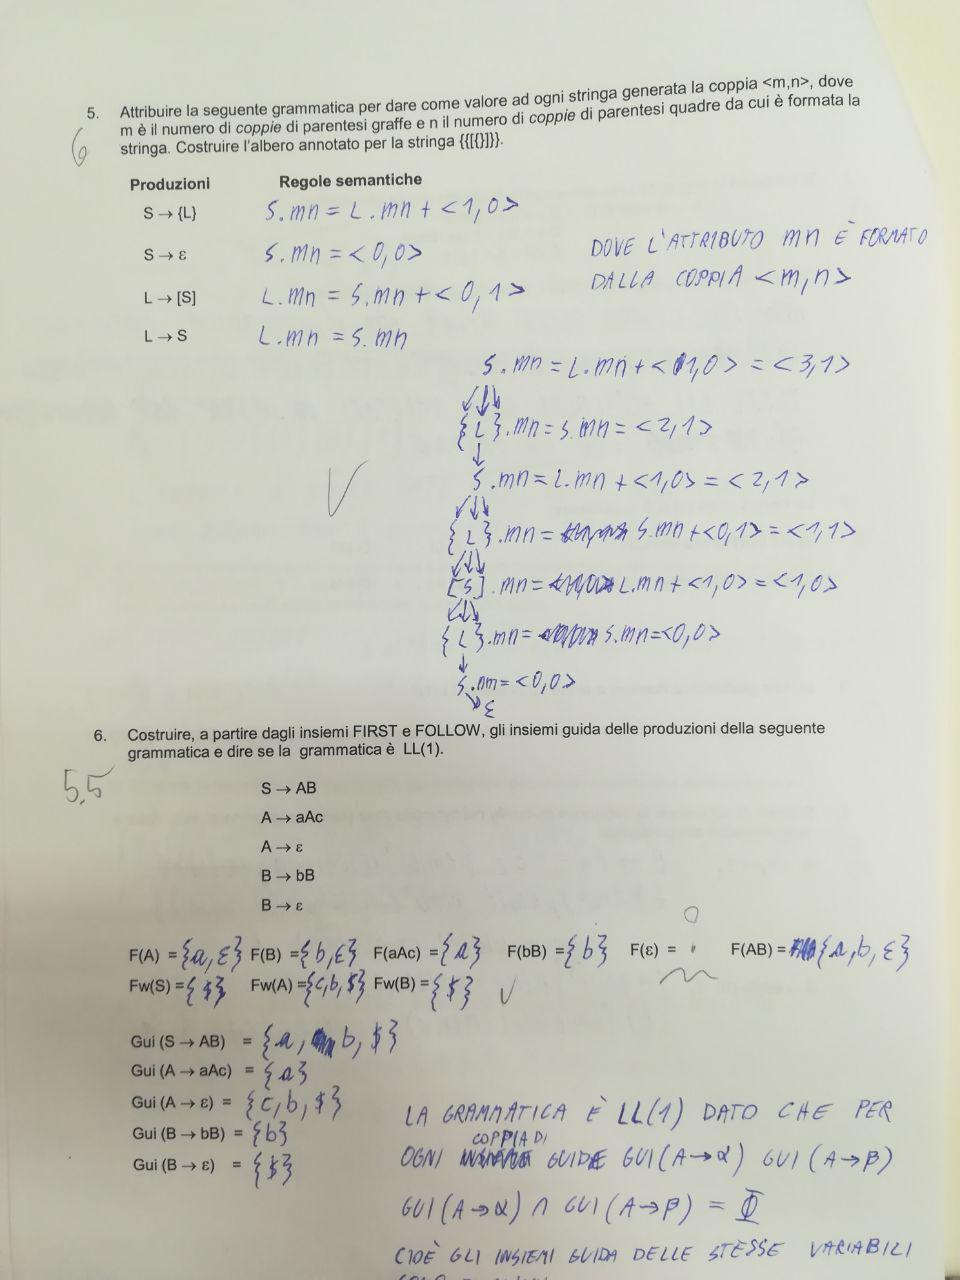 5. Attribuire la seguente grammatica per dare come valore ad ogni stringa generata la coppia <m,n>, dove
m è il numero di coppie di parentesi graffe e n il numero di coppie di parentesi quadre da cui è formata la
6
stringa. Costruire l'albero annotato per la stringa {{[{}]}}.
Produzioni Regole semantiche
S → {L} S.mn = L.mn + <1,0>
S → ε S.mn = <0,0>
DOVE L'ATTRIBUTO mn È FORMATO
DALLA COPPIA <m,n>
L → [S] L.mn = S.mn + <0,1>
L → S L.mn = S.mn
S.mn = L.mn + <1,0> = <3,1>
{L}.mn = S.mn = <2,1>
S.mn = L.mn + <1,0> = <2,1>
{L}.mn = S.mn + <0,1> = <1,1>
[S].mn = L.mn + <1,0> = <1,0>
{L}.mn = S.mn = <0,0>
S.nm = <0,0>
ε
6. Costruire, a partire dagli insiemi FIRST e FOLLOW, gli insiemi guida delle produzioni della seguente
grammatica e dire se la grammatica è LL(1).
5,5
S → AB
A → aAc
A → ε
B → bB
B → ε
F(A) = {a,ε} F(B) = {b,ε} F(aAc) = {a} F(bB) = {b} F(ε) = F(AB) = {a,b,ε}
Fw(S) = {$} Fw(A) = {c,b,$} Fw(B) = {$}
Gui (S → AB) = {a, b, $}
Gui (A → aAc) = {a}
Gui (A → ε) = {c,b,$}
Gui (B → bB) = {b}
Gui (B → ε) = {$}
LA GRAMMATICA È LL(1) DATO CHE PER
OGNI COPPIA DI GUIDE GUI(A→α) GUI(A→β)
GUI(A→α) ∩ GUI(A→β) = Φ
CIOÈ GLI INSIEMI GUIDA DELLE STESSE VARIABILI